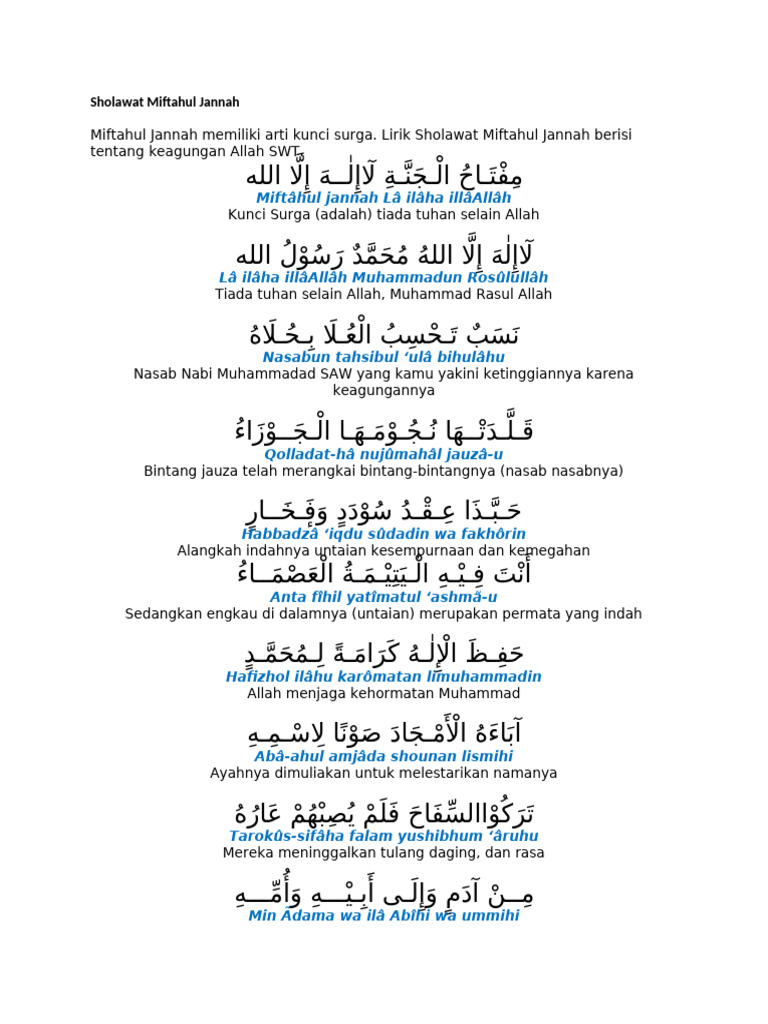 Sholawat Miftahul Jannah
Miftahul Jannah memiliki arti kunci surga. Lirik Sholawat Miftahul Jannah berisi
tentang keagungan Allah SWT.
مِفْتَـاحُ الْـجَنَّـةِ لَآإِلٰــهَ إِلَّا الله
Miftâhul jannah Lâ ilâha illâAllâh
Kunci Surga (adalah) tiada tuhan selain Allah
لَآإِلٰهَ إِلَّا اللهُ مُحَمَّدٌ رَسُوْلُ الله
Lâ ilâha illâAllâh Muhammadun Rosûlullâh
Tiada tuhan selain Allah, Muhammad Rasul Allah
نَسَبٌ تَـحْسِبُ الْعُـلَا بِـحُـلَاهُ
Nasabun tahsibul ‘ulâ bihulâhu
Nasab Nabi Muhammadad SAW yang kamu yakini ketinggiannya karena
keagungannya
قَـلَّـدَتْــهَا نُـجُـوْمَـهَـا الْـجَــوْزَاءُ
Qolladat-hâ nujûmahâl jauzâ-u
Bintang jauza telah merangkai bintang-bintangnya (nasab nasabnya)
حَـبَّـذَا عِـقْـدُ سُوْدَدٍ وَفَـخَــارٍ
Habbadzâ ‘iqdu sûdadin wa fakhôrin
Alangkah indahnya untaian kesempurnaan dan kemegahan
أَنْتَ فِـيْـهِ الْـيَتِيْـمَـةُ الْعَصْمَــاءُ
Anta fîhil yatîmatul ‘ashmã-u
Sedangkan engkau di dalamnya (untaian) merupakan permata yang indah
حَفِـظَ الْإِلٰـهُ كَرَامَـةً لِـمُحَمَّـدٍ
Hafizhol ilâhu karômatan limuhammadin
Allah menjaga kehormatan Muhammad
آبَاءَهُ الْأَمْـجَادَ صَوْنًا لِاسْـمِـهِ
Abâ-ahul amjâda shounan lismihi
Ayahnya dimuliakan untuk melestarikan namanya
تَرَكُوْاالسِّفَاحَ فَلَمْ يُصِبْهُمْ عَارُهُ
Tarokûs-sifâha falam yushibhum ‘âruhu
Mereka meninggalkan tulang daging, dan rasa
مِــنْ آدَمٍ وَإِلَـى أَبِـيْـــهِ وَأُمِّـــهِ
Min Ãdama wa ilâ Abîhi wa ummihi